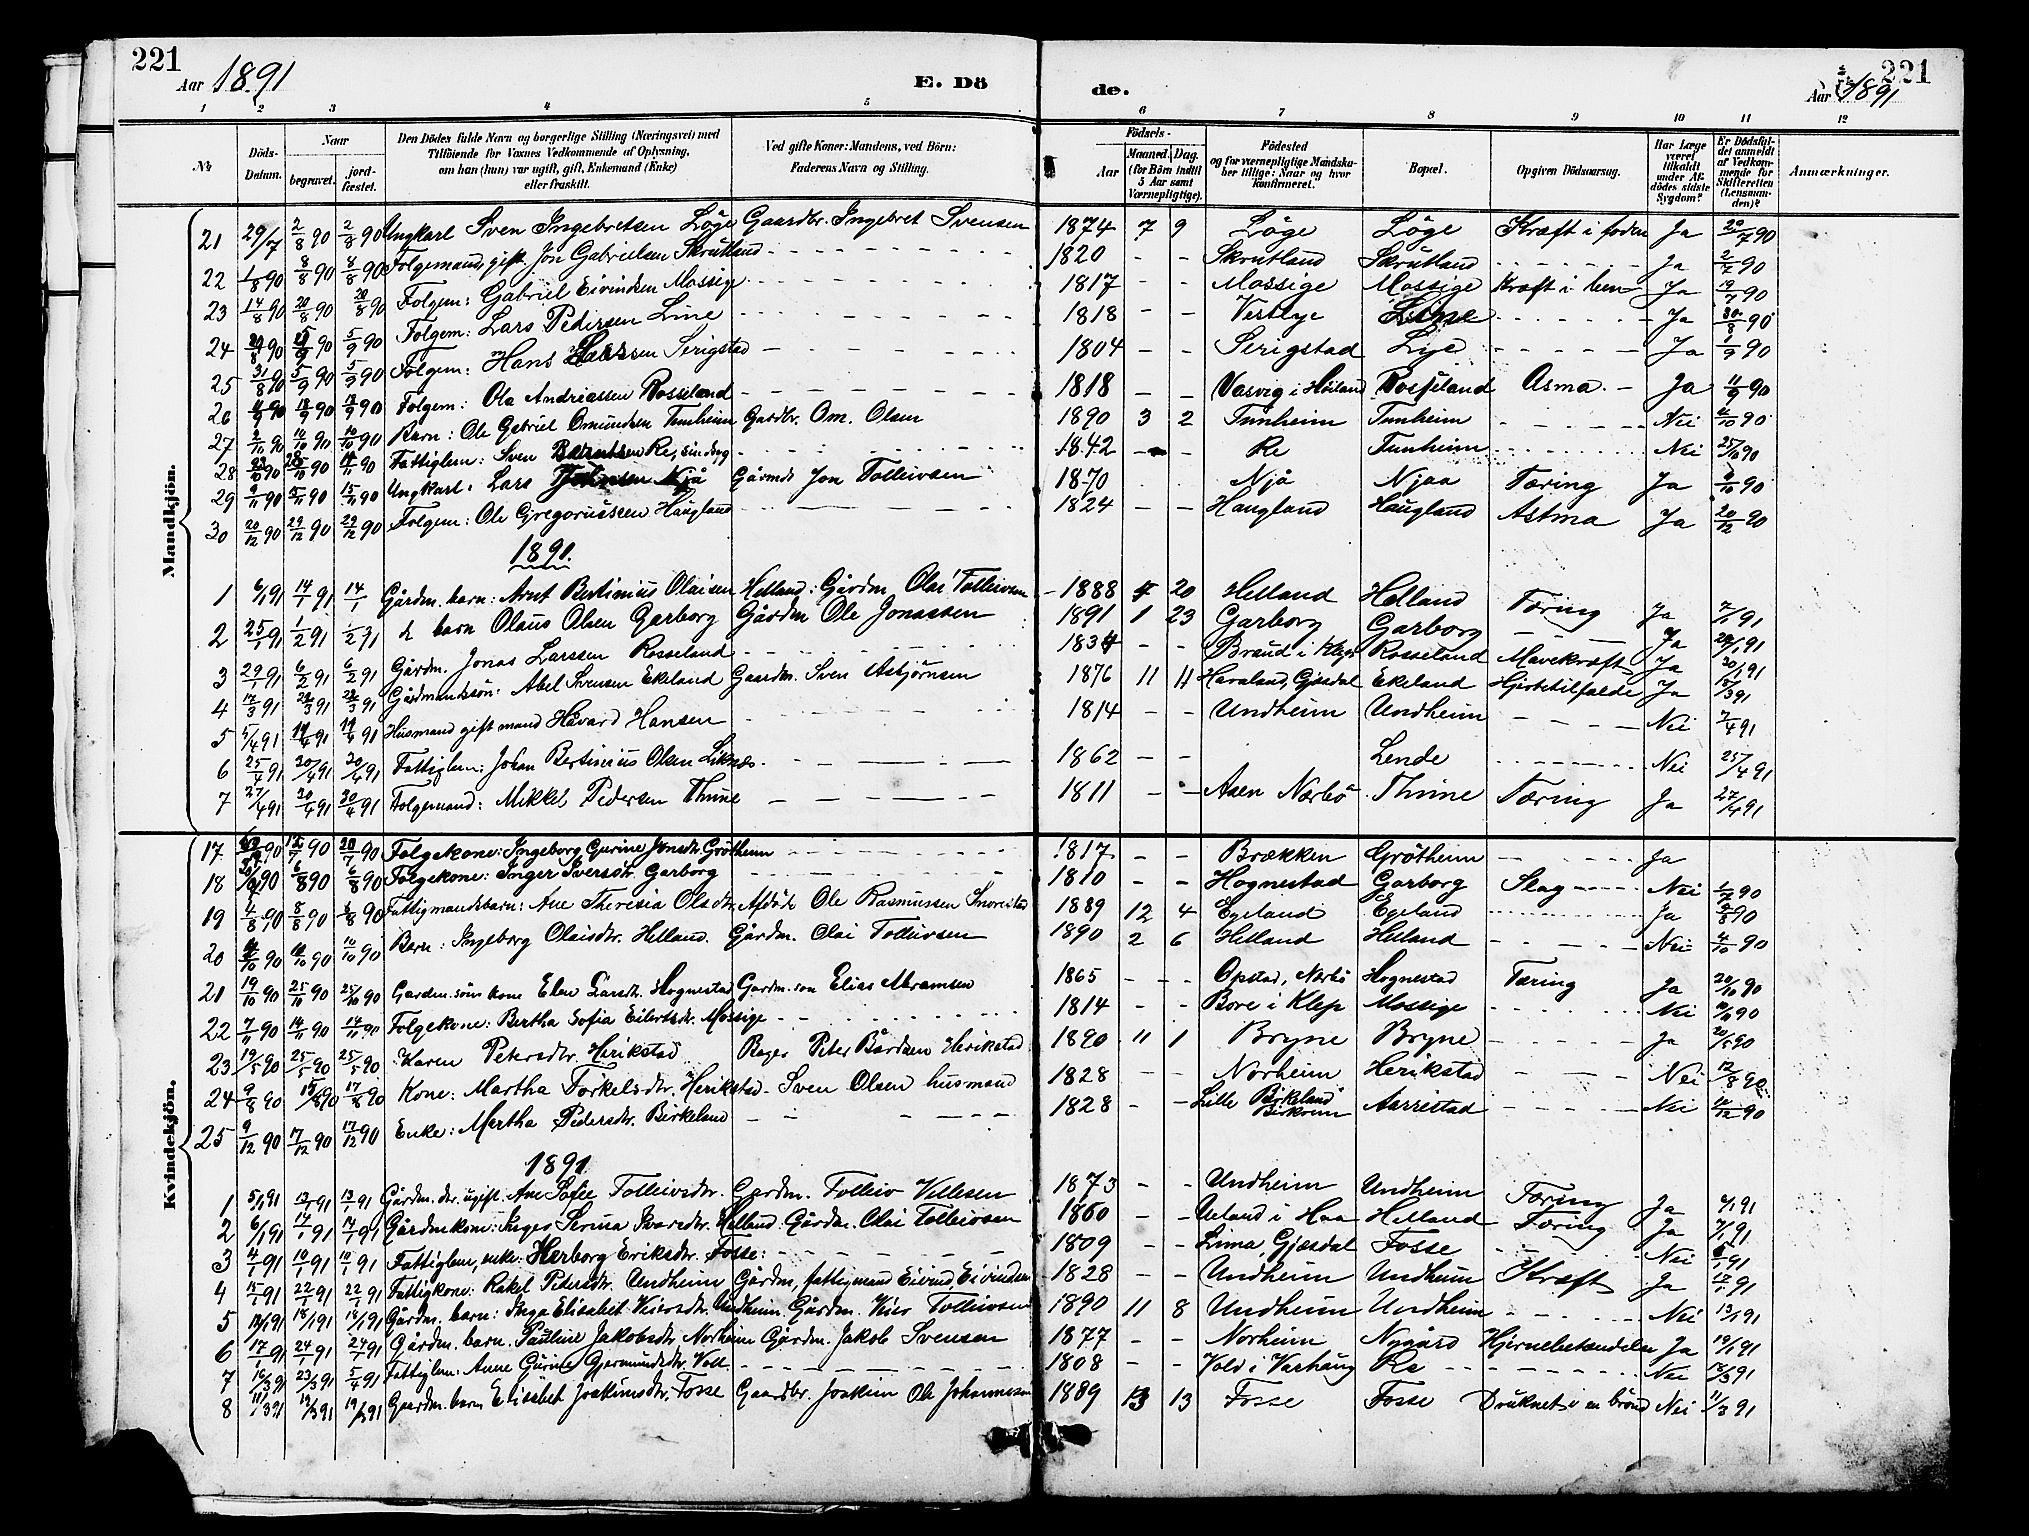 221
Aar 1891
E. Dö
de.
221
Aar 1891
1 2 3 4 5 6 7 8 9 10 11 12
No.
Döds-Datum.
Naar begravet. jordfæstet.
Den Dödes fulde Navn og borgerlige Stilling (Næringsvei) med Tilföiende for Voxnes Vedkommende af Oplysning, om han (hun) var ugift, gift, Enkemand (Enke) eller fraskilt.
Ved gifte Koner: Mandens, ved Börn: Faderens Navn og Stilling.
Födsels-
Aar
Maaned. Dag. (for Börn indtil 5 Aar samt Værnepligtige).
Födested og for værnepligtige Mandskaber tillige: Naar og hvor konfirmeret.
Bopæl.
Opgiven Dödsaarsag.
Har Læge været tilkaldt under Afdödes sidste Sygdom?
Er Dödsfaldet anmeldt af Vedkommende for Skifteretten (Lensmanden)?
Anmærkninger.
Mandkjön.
21 29/7 2/8 90 2/8 90 Ungkarl Sven Ingebretsen Löge Gaardbr. Ingebret Svensen 1874 7 9 Löge Löge Kræft i foden Ja 90
22 1/8 90 8/8 90 8/8 90 Folgemand, gift. Jon Gabrielsen Skrutland 1820 - - Skrutland Skrutland Ja 2/7 90
23 14/8 90 20/8 90 20/8 90 Folgem: Gabriel Eivindsen Mossige 1817 - - Mossige Mossige Kræft i Ja 90
24 90 90 5/9 90 Folgem: Lars Pedersen Line 1818 - - Vestlye Line Ja 30/8 90
25 31/8 90 5/9 90 5/9 90 Folgem: Hans Serigstad 1804 - - Serigstad Lye Ja 1/9 90
26 90 13/9 90 13/9 90 Folgem: Ola Andreassen Rosseland 1818 - - Vasvig i Höiland Rosseland Asma. Ja 11/9 90
27 2/10 90 10/10 90 10/10 90 Barn: Ole Gabriel Omundsen Tunheim Gardbr. Om. Olsen 1890 3 2 Tunheim Tunheim Nei 4/10 90
28 90 90 90 Fattiglem: Sven Re, 1842 - - Re Tunheim Nei 25/10 90
29 90 90 15/11 90 Ungkarl: Lars Njå Gårmd Jon Tolleivsen 1870 Njå Njaa Tæring Ja 90
30 20/12 90 29/12 90 29/12 90 Folgem: Ole Gregoriussen Haugland 1824 - - Haugland Haugland Astma Ja 20/12 90
1891.
1 6/1 91 14/1 91 14/1 Gårdm. barn: Arnt Bertinius Olaisen Helland: Gårdm Olai Tolleivsen 1888 20 Helland Helland Tæring Ja 7/1 91
2 25/1 91 1/2 91 1/2 91 barn Olaus Olsen Garborg Gårdm Ole Jonassen 1891 1 23 Garborg Garborg Ja 91
3 29/1 91 6/2 91 6/2 91 Gårdm. Jonas Larssen Rosseland 1834 - - Braud i Klep Rosseland Mavekræft Ja 30/1 91
4 17/3 91 23/3 91 23/3 91 Gårdmandssön: Abel Svensen Ekeland Gaardm. Sven Asbjörnsen 1876 11 11 Haraland, Gjesdal Ekeland Hjertetilfælde Ja 91
5 5/4 91 14/4 91 14/4 91 Husmand gift mand Håvard Hansen 1814 - - Undheim Undheim Nei 7/4 91
6 25/4 91 30/4 91 30/4 91 Fattiglem: Johan Bertinius Olsen 1862 - - Lende Nei 25/4 91
7 27/4 91 30/4 91 30/4 91 Folgemand: Mikkel Pedersen Thime 1811 - - Aasen Nærbö Thime Tæring Ja 27/4 91
Kvindekjön.
17 90 90 20/7 90 Folgekone: Ingeborg Gurine Jonsdtr. Grötheim 1817 - - Brækken Grötheim Ja
18 90 6/8 90 6/8 90 Folgekone: Inger Iversdtr. Garborg 1810 - - Hognestad Garborg Slag Nei 90
19 4/8 90 8/8 90 8/8 90 Fattigmandsbarn: Ane Theresia Olsdtr. Afdöde Ole Rasmussen 1889 12 4 Egeland Egeland Ja 90
20 90 10/10 90 10/10 90 Barn: Ingeborg Olaisdtr. Helland. Gårdm. Olai Tolleivsen 1890 2 6 Helland Helland Nei 4/10 90
21 19/10 90 25/10 90 25/10 90 Gardm. söns kone Elen Larsdtr. Hognestad Gardm. sön Elias Abramsen 1865 - - Opstad, Nærbö Hognestad Tæring Ja 20/10 90
22 7/11 90 14/11 90 14/11 90 Folgekone: Bertha Sofia Eilertsdtr. Mossige 1814 - - Bore i Klep Mossige Nei 10/11 90
23 19/5 90 25/5 90 25/5 90 Karen Petersdtr. Herikstad Bager Peter Bårdsen Herikstad 1890 11 1 Bryne Bryne Ja 20/5 90
24 9/8 90 15/8 90 17/8 90 Kone: Martha Torkelsdtr. Herikstad Sven Olsen husmand 1828 - - Norheim Herikstad Nei 12/8 90
25 9/12 90 17/12 90 17/12 90 Enke: Martha Pedersdtr. Birkeland 1828 - - Lille Birkeland Birkrem Aarrestad Nei 90
1891
1 5/1 91 13/1 91 13/1 91 Gårdm. dtr. ugift. Ane Sofie Tolleivsdtr. Gardm. Tolleiv Villesen 1873 - - Undheim Undheim Tæring Ja 91
2 6/1 91 14/1 91 14/1 91 Gårdm kone: Inger Serina Ivarsdtr. Helland: Gårdm. Olai Tolleivsen 1860 - - Ueland i Haa Helland Tæring Ja 7/1 91
3 4/1 91 10/1 91 10/1 91 Fattiglem, enke: Herborg Eriksdtr. Fosse: 1809 - - Lima, Gjesdal Fosse Nei 91
4 15/1 91 22/1 91 22/1 91 Fattigkone: Rakel Pedersdtr. Undheim Gårdm, fattigmand Eivind Eivindsen 1828 - - Undheim Undheim Kræft Ja 91
5 91 18/1 91 18/1 91 Gårdm. barn: Inga Elisabet Undheim Gårdm. Tolleivsen 1890 11 8 Undheim Undheim Nei 13/1 91
6 17/1 91 24/1 91 24/1 91 Gårdm. barn. Pauline Jakobsdtr Norheim Gårdm. Jakob Svensen 1877 - - Norheim Nygård Hjernebetændelse Ja 19/1 91
7 16/3 91 23/3 91 5/4 91 Fattiglem: Anne Gurine Gjermundsdtr. Voll 1808 - - Vold i Varhaug Re Nei 18/3 91
8 11/3 91 19/3 91 19/3 91 Gaardm. barn Elisabet Joakimsdtr. Fosse Gaardbr. Joakim Ole Johannessen 1889 13 Fosse Fosse Druknet i en brönd Nei 11/3 91